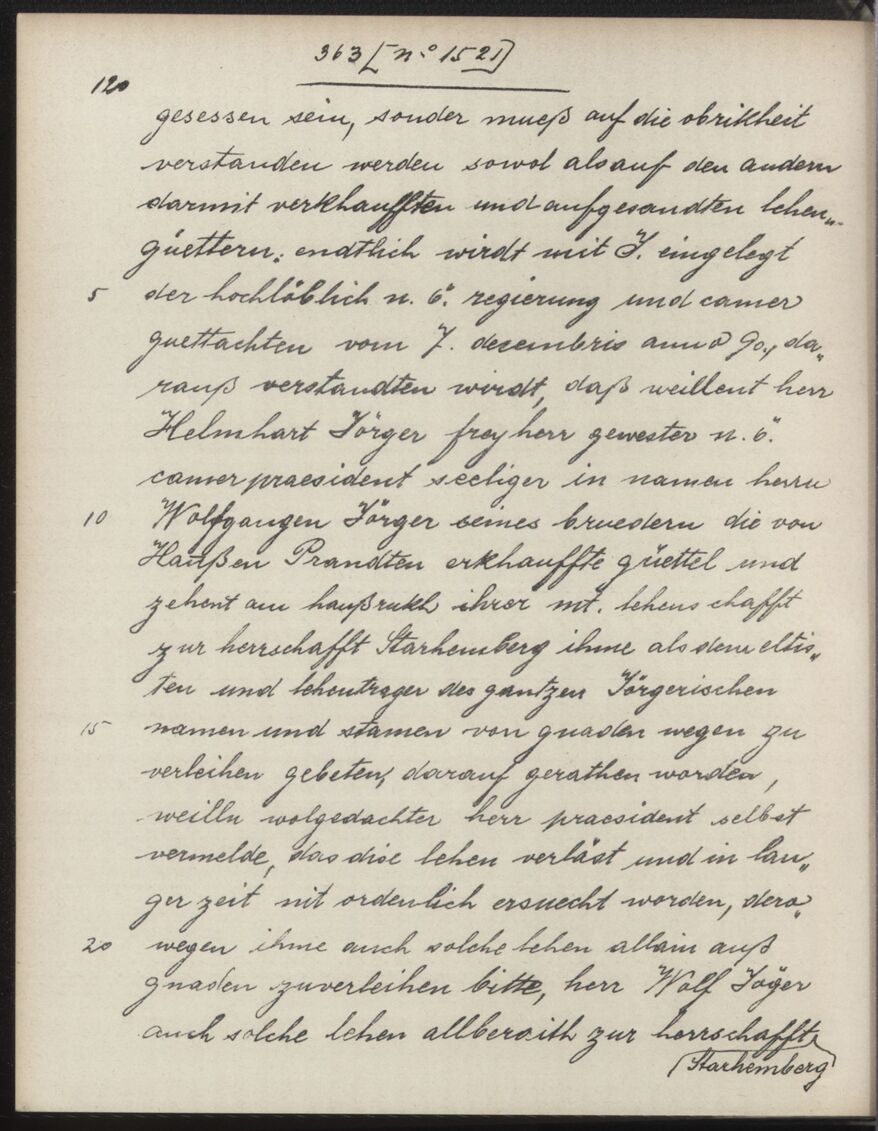 363 [n.° 1521]
120
gesessen sein, sonder mueß auf die obrikheit
verstanden werden sowol als auf den andern
darmit verkhaufften und aufgesandten lehen„
güettern; endtlich wirdt mit J. eingelegt
5 der hochlöblich n. ö. regierung und camer
guettachten vom 7. decembris anno 90., da„
rauß verstandten wirdt, daß weillent herr
Helmhart Jörger freyherr gewester n. ö.
camerpraesident seeliger in namen herrn
10 Wolfgangen Jörger seines bruedern die von
Haußen Prandten erkhauffte güettel und
zehent am haußrukh ihrer mt. lehenschafft
zur herrschafft Starhemberg ihme als dem eltis„
ten und lehentrager des gantzen Jörgerischen
15 namen und stamen von gnaden wegen zu
verleihen gebeten, darauf gerathen worden,
weilln wolgedachter herr praesident selbst
vermelde, das dise lehen verläst und in lan„
ger zeit nit ordenlich ersuecht worden, dero„
20 wegen ihme auch solche lehen allain auß
gnaden zuverleihen bitte, herr Wolf Jöger
auch solche lehen allberaith zur herrschafft
Starhemberg